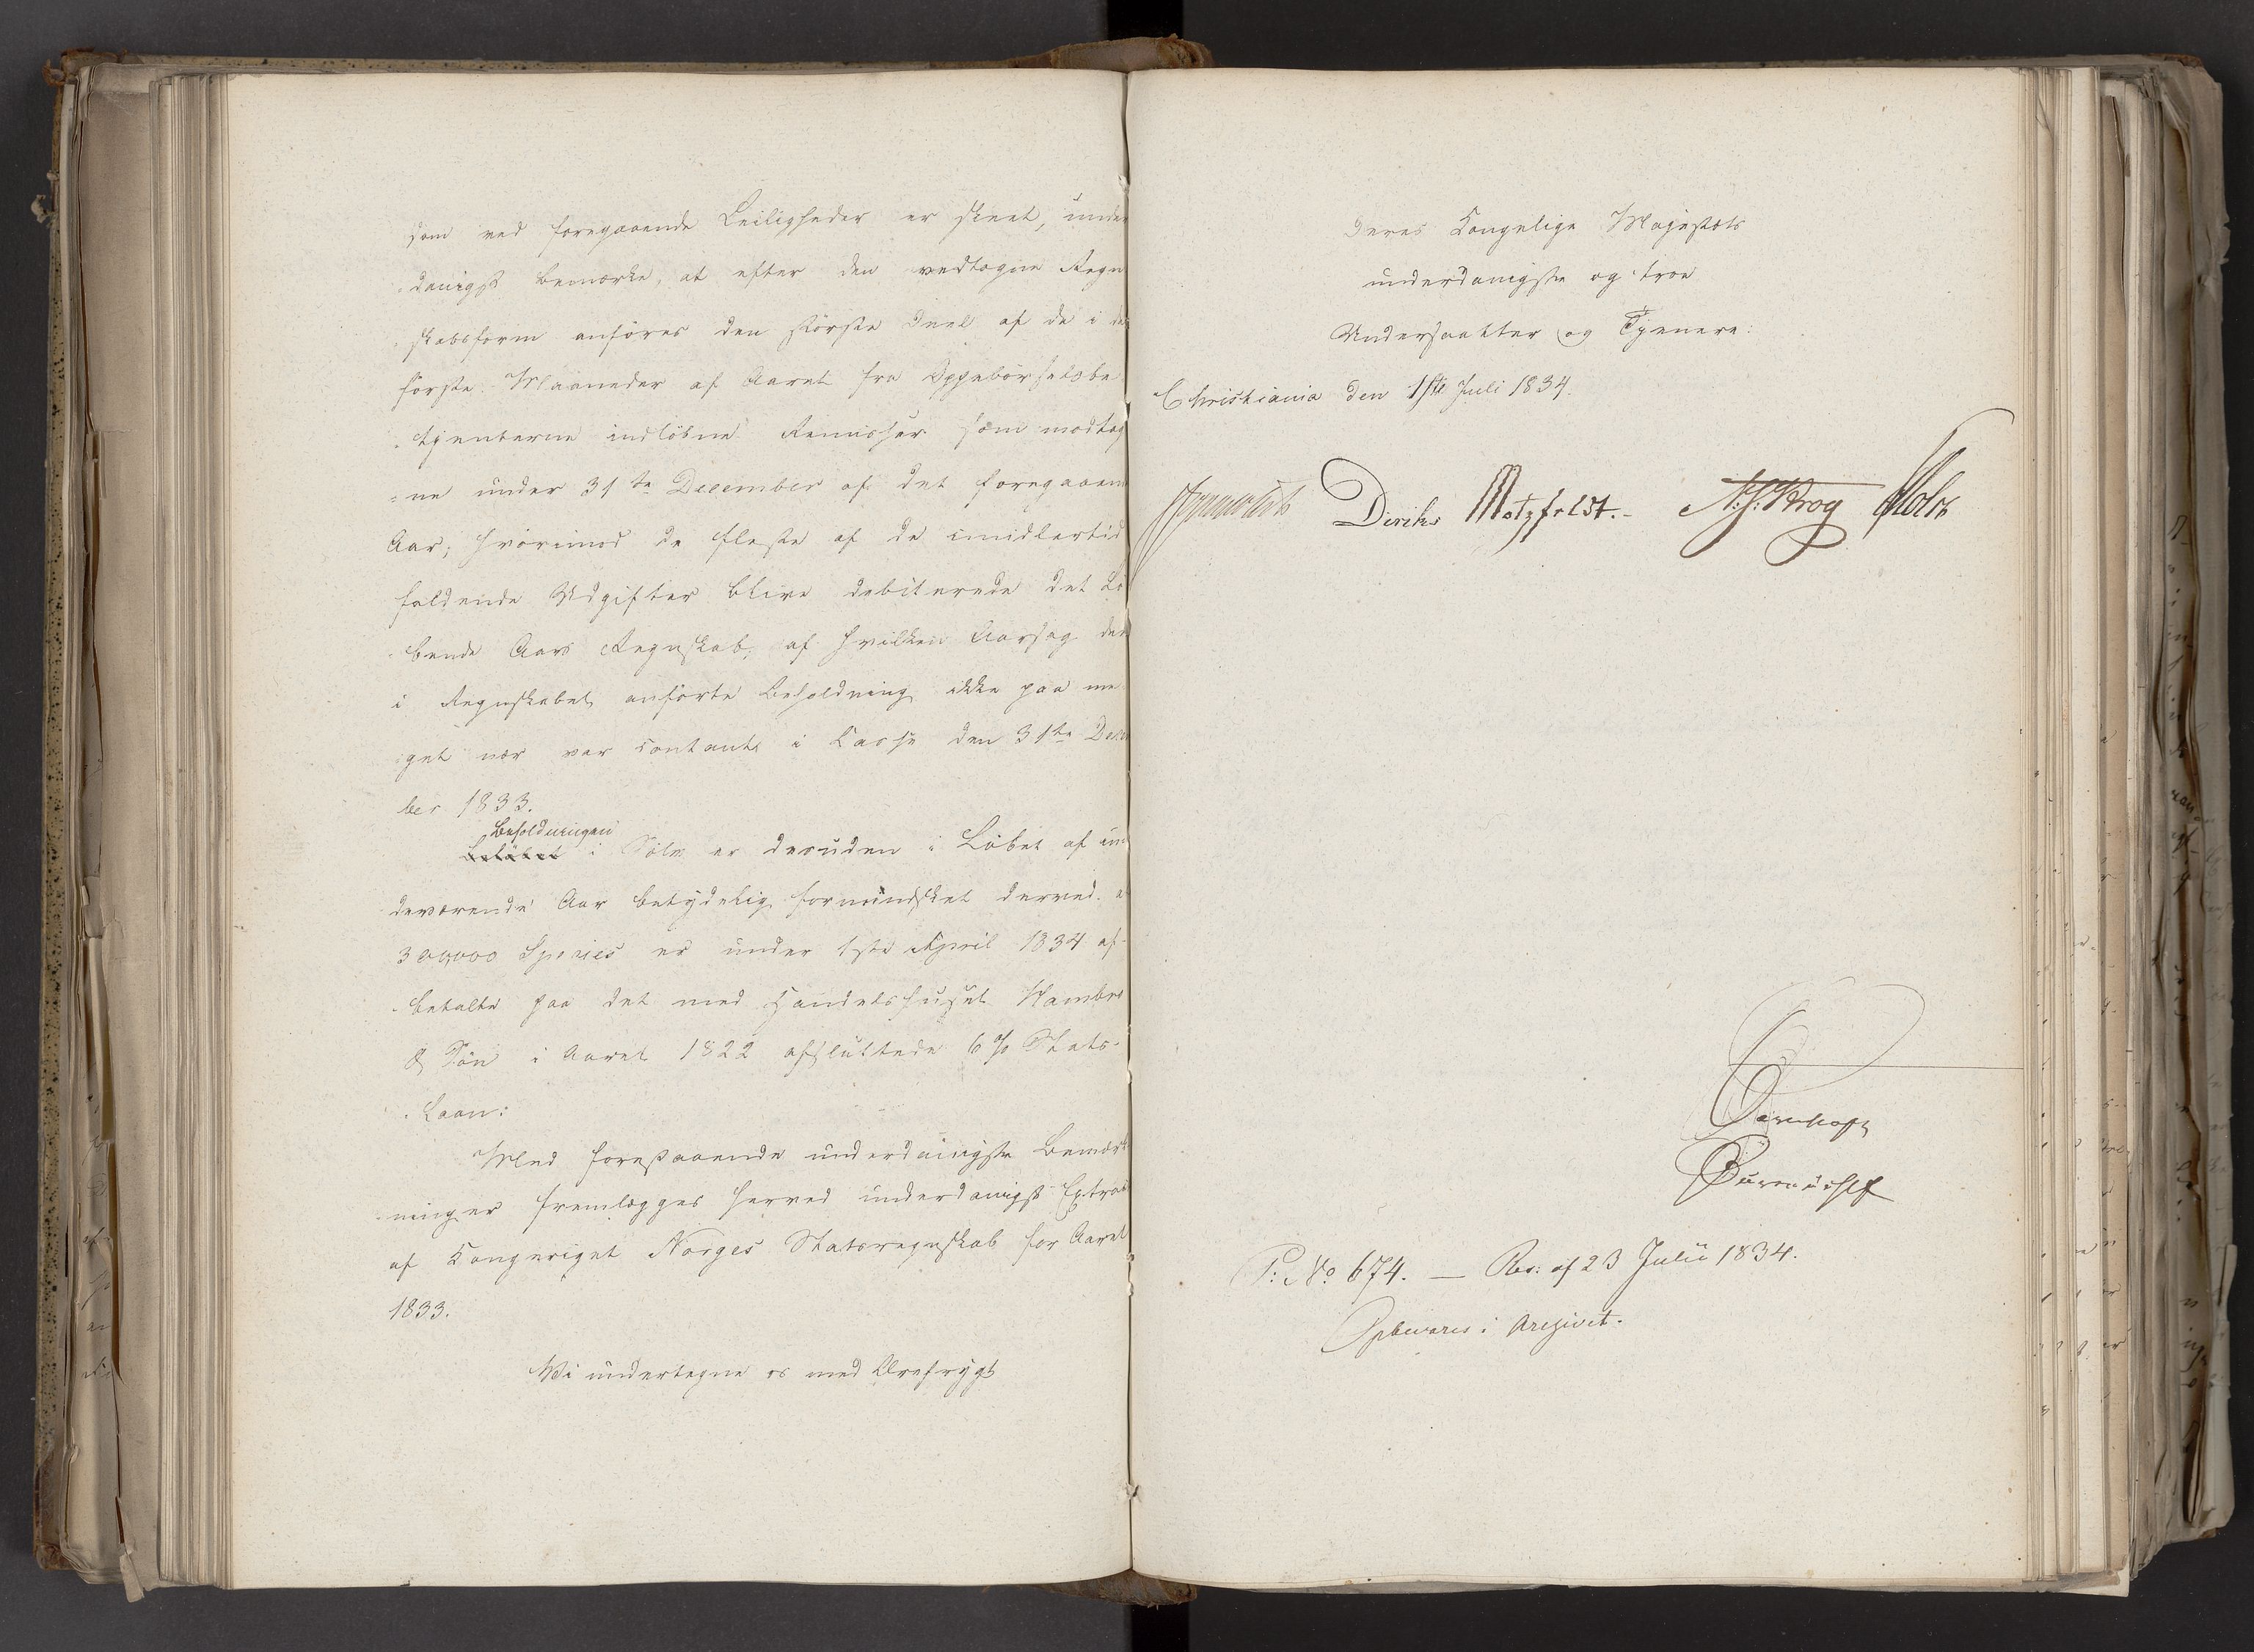 som ved foregaaende Leiligheder er skeet, under
danigst bemærke, at efter den vedtagne Regn
skabsform anföres den störste Deel af de i de
förste Maaneder af Aaret fra Oppebörselsbe
tjenterne indlöbne Remisser som modtag
=ne under 31te December af det foregaaen
Aar; hvorimod de fleste af de imidlertid
faldende Udgifter blive debiterede det Lö
bende Aars Regnskab, af hvilken Aarsag den
i Regnskabet anförte Beholdning ikke paa me
get nær var contant i Casse den 31te Decem
ber 1833.
Beholdningen
Belöbet i Sölv er desuden i Löbet af in
deværende Aar betydelig formindsket derved. a
300,000 Species er under 1ste April 1834 af-
betalte paa det med Handelshuset Hambro
& Sön i Aaret 1822 afsluttede 6 % Stats-
Laan:
Med forestaaende underdanigste Bemærk
ninger fremlægges herved underdanigst Extract
af Kongeriget Norges Statsregnskab for Aaret
1833.
Vi undertegne os med Ærefrygt
Deres Kongelige Majestæts
underdanigste og troe
Undersaatter og Tjenere:
Christiania den 1ste Juli 1834.
Diriks Motzfeldt. N. J. Krog Holst
P: No 674. — Res: af 23 Julii 1834.
Opbevares i Archivet.